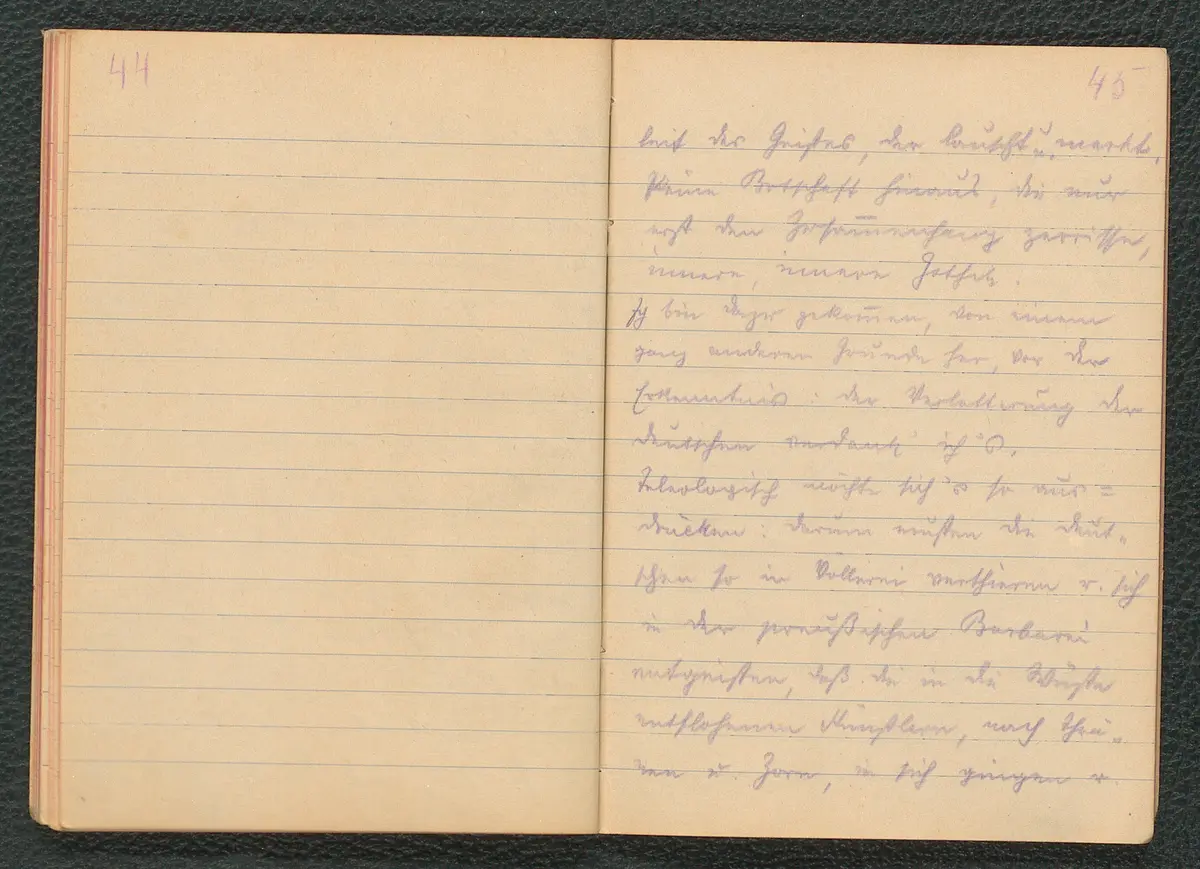 44
45
keit des Geistes, der lauscht u. merkt.
Keine Botschaft hinaus, die nur
erst den Zusam̅enhang zerrisse,
innere, innere
Ich bin dazu gekom̅en, von einem
ganz anderen Grunde her, vor der
Erkenntnis: der Verlotterung der
Deutschen verdank' ich's.
Teleologisch möchte sich's so aus=
drücken: darum mußten die Deut-
schen so in Völlerei verthieren u. sich
in der preußischen Barbarei
entgeisten, daß die in die Wüste
entflohenen Künstlern, nach Thrä-
nen u. Zorn, in sich gingen u.